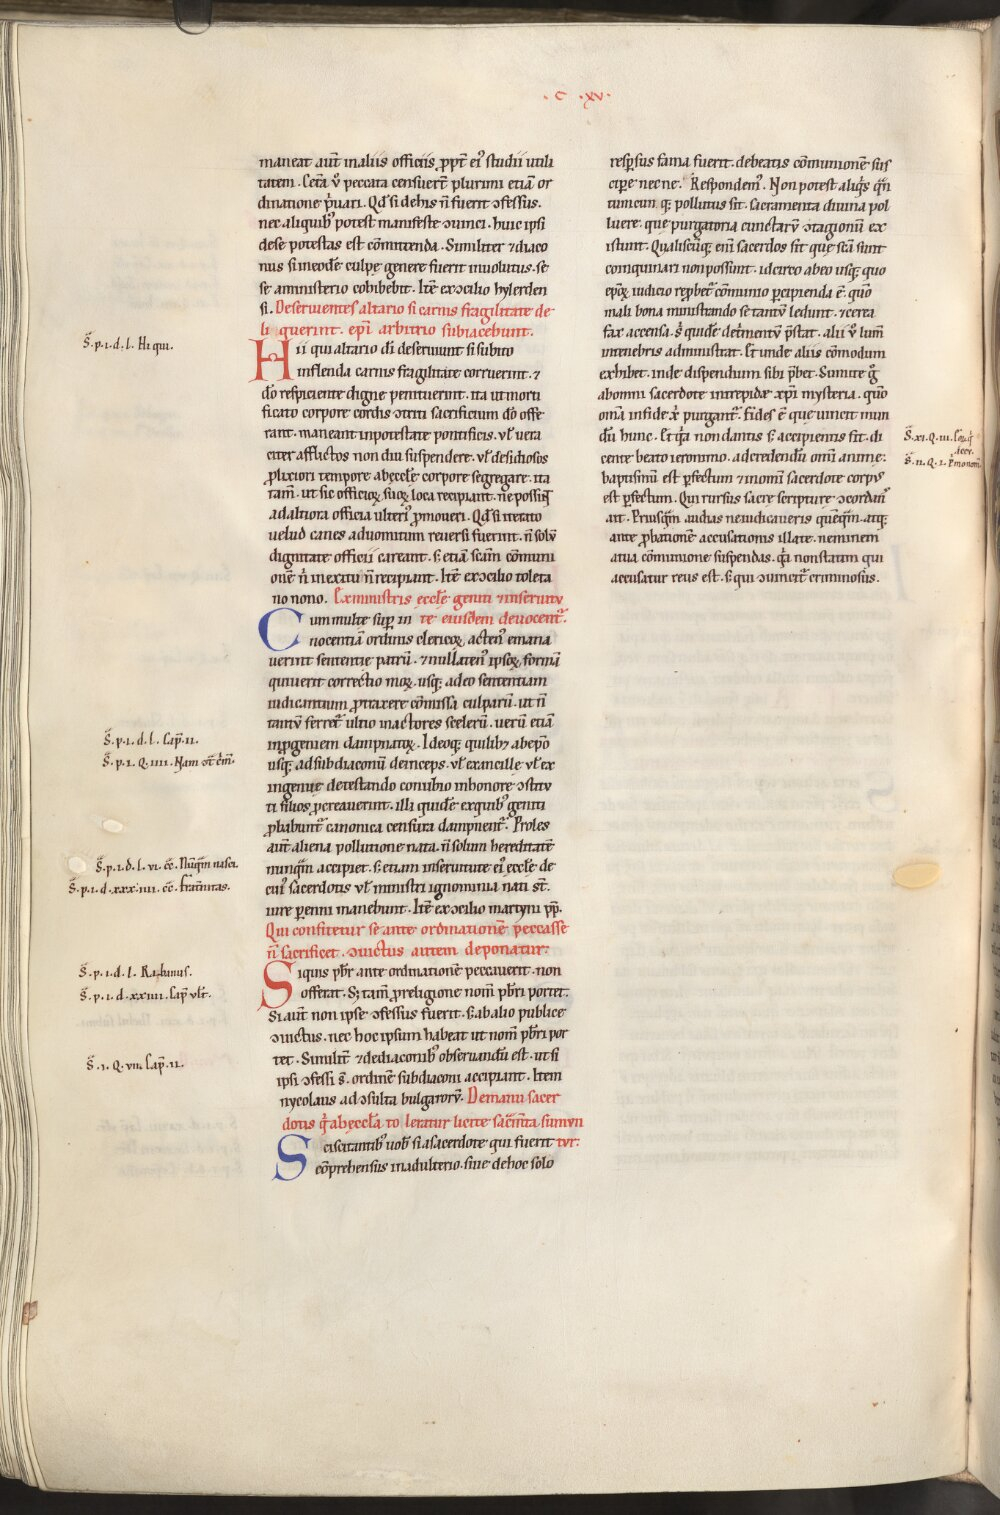 · C · XV ·
maneat aut̄ in aliis officiis ꝓpt̄ ei᷒ studii utili
tatem . Cet̄a v̊ peccata censuert̄ plurimi etiā or
dinatione p̱uari . Qd̓ si de his n̄ fuerit ↄfessus .
nec aliquib᷒ potest manifeste ↄuinci . huic ipsi
de se potestas est cōmittenda . Similiter ⁊ diaco
nus si in eodē culpę genere fuerit inuolutus . se
se a ministerio cohibebit . Itē ex ↄcilio hylerden
si . Deseruientes altario si carnis fragilitate de
li querint . epī arbitrio subiacebunt .
S̄ . p . i . d . l . Hi qui .
Hii qui altario dī deseruiunt si subito
in flenda carnis fragilitate corruerint . ⁊
dō respiciente digne penituerint . ita ut morti
ficato corpore cordis ↄtriti sacrificium dō offe
rant . maneant in potestate pontificis . vl̄ vera
citer afflictos non diu suspendere . vl̄ desidiosos
ꝓlixiori tempore ab ęccłę corpore segregare . ita
tam̄ . ut sic officioꝝ suoꝝ loca recipiant . ne possīt
ad altiora officia ulteri᷒ ꝓmoueri . Qd̓ si iterato
velud canes ad uomitum reuersi fuerint . n̄ solū
dignitate officii careant . s̓ etiā sc̄am cōmuni
onē n̄ in exitu n̄ recipiant . Itē ex ↄcilio toleta
no nono . Ex ministris ęccłę geniti in seruitu
te eiusdem deuocent̄ .
Cum multe sup̱ in
nocentiā ordinis clericoꝝ . acten᷒ emana
uerint sententie patrū . ⁊ nullaten᷒ ipsoꝝ formā
quiuerit correctio moꝝ . usq; adeo sententiam
iudicantium ꝓtraxere cōmissa culparū . ut n̄
tantū ferret̄ ultio in actores scelerū . verū etiā
in ꝓgeniem dampnatoꝝ . Ideoq; quilib᷒ ab ep̄o
S̄ . p . i . d . l . Cap̱ . ii .
usq; ad subdiaconū deinceps . vl̄ ex ancille . vl̄ ex
S̄ . p . i . Q . iiii . Nam ōt c̄m̄ .
ingenue detestando conubio in honore ↄstitu
ti filios ꝓcreauerint . illi quidē ex quib᷒ geniti
ꝓbabunt̄ canonica censura dampnent̄ . Proles
aut̄ aliena pollutione nata . n̄ solum hereditatē
nunqm̄ accipiet . s̓ etiam in seruitute ei᷒ ęccłę de
S̄ . p . i . d . l . vi . c̄c̄ . Nūqm̄ nasci .
cui᷒ sacerdotis vl̄ ministri ignominia nati st̄ .
S̄ . p . i . d . xxx . iiii . c̄c̄ . frat̄nitas .
iure p̱enni manebunt . Itē ex ↄcilio martyni pp̄ .
Qui confitetur se ante ordinationē peccasse
n̄ sacrificet . ↄuictus autem deponatur .
S̄ . p . i . d . l . Rabanus .
Siquis pb̄r ante ordinationē peccauerit . non
S̄ . p . i . d . xxiiii . Cap̱ vl̄t .
offerat . S; tam̄ ꝓ religione nom̄ pb̄ri portet .
Si aut̄ non ipse ↄfessus fuerit . s̓ ab alio publice
ↄuictus . nec hoc ipsum habeat ut nom̄ pb̄ri por
S̄ . i . Q . vii . Cap̱ . ii .
tet . Similit̄ ⁊ de diaconib᷒ obseruandū est . ut si
ipsi ↄfessi s̄ . ordinē subdiaconi accipiant . Item
nycolaus ad ↄsulta bulgarorū . De manu sacer
dotis q̓ ab ęccła toleratur licite sac̄m̄ta sumun
tur .
Sciscitantib᷒ uob̄ si a sacerdote qui fuerit
cōprehensus in adulterio . siue de hoc solo
resp̱sus fama fuerit . debeatis cōmunionē sus
cipe nec ne . Respondem᷒ . Non potest aliqis qn̄
tumcunq; pollutus sit . sacramenta diuina pol
luere . que purgatoria cunctarū ↄtagionū ex
istunt . Qualiscunq; enī sacerdos sit que sc̄a sunt
coinquinari non possunt . idcirco ab eo usq; quo
ep̄oꝝ iudicio rep̱bet̄ cōmunio p̱cipienda ē . qm̄
mali bona ministrando se tantū ledunt . ⁊ cerea
fax accensa . s̓ quidē det̄mentū p̱stat . alii v̊ lum̄
in tenebris administrat . Et unde aliis cōmodum
exhibet . inde dispendium sibi p̱bet . Sumite g̊
ab omni sacerdote intrepide xp̄i mysteria . qm̄
omīa in fide x̄p̄i purgant̄ . fides ē que uincit mun
dū hunc . Et qa non dantis s̓ accipientis sit . di
S̄ . xi . Q . iii .
cente beato ieronimo . ad credendū omī anime :
S̄ . ii . Q . i . Pīmo nom̄
baptismū est p̱fectum ⁊ in omī sacerdote corpus
est p̱fectum . Qui rursus sacre scripture ↄcordan̄
ait . Priusqm̄ audias ne iudicaueris quēqm̄ . atq;
ante ꝓbationē accusationis illate . neminem
a tua cōmunione suspendas . qa non statim qui
accusatur reus est . s̓ qui ↄuincit̄ criminosus .